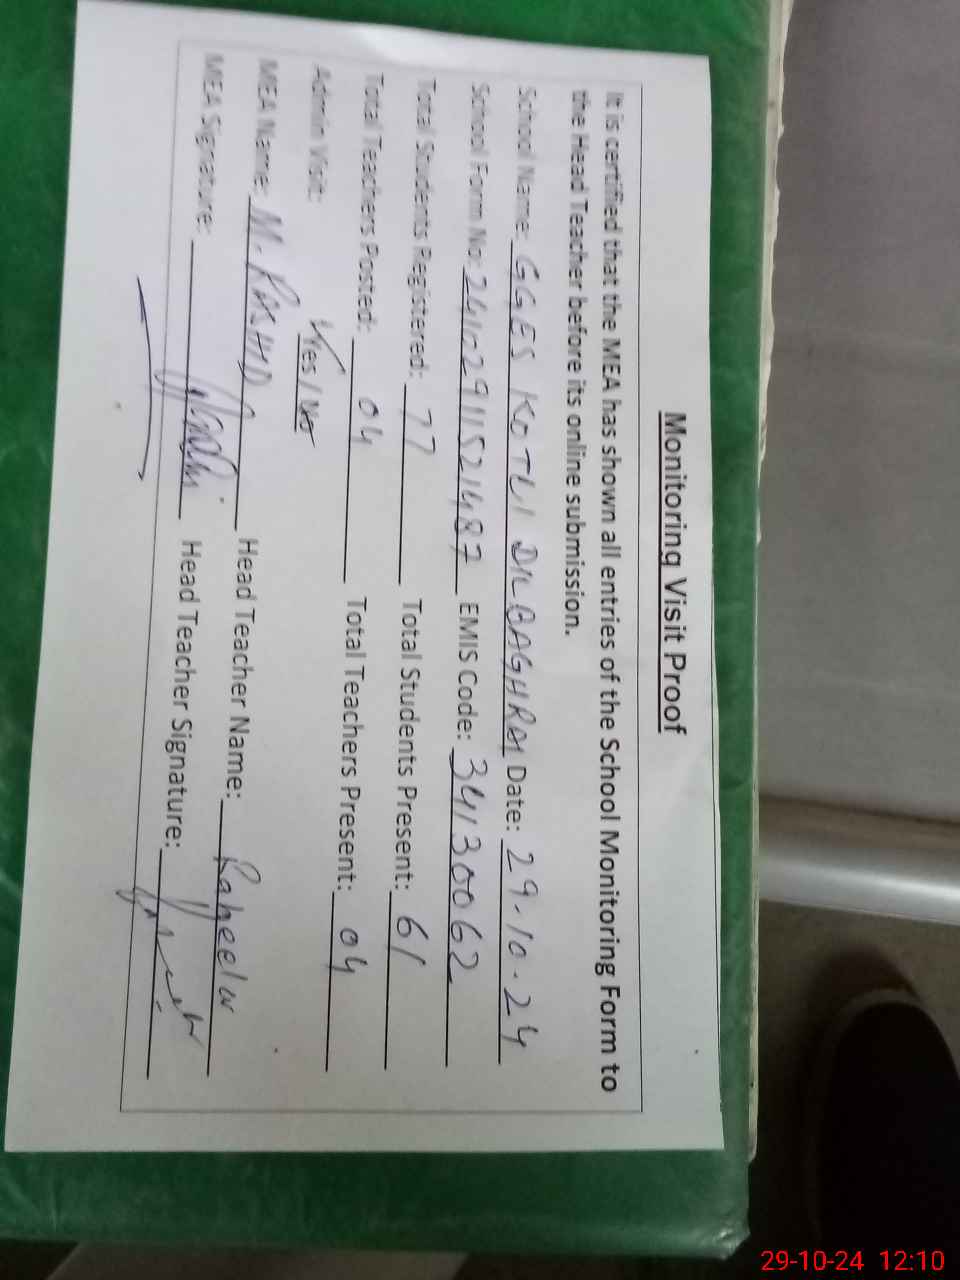 Monitoring Visit Proof
It is certified that the MEA has shown all entries of the School Monitoring Form to
the Head Teacher before its online submission.
School Name: GGES KOTLI DILBAGHRAI Date: 29-10-24
School Form No: 24102911521487 EMIS Code: 34130062
Total Students Registered: 77 Total Students Present: 61
Total Teachers Posted: 04 Total Teachers Present: 04
Admin Visit: Yes / No
MEA Name: M. RASHID Head Teacher Name: Raheela
MEA Signature: Head Teacher Signature:
29-10-24 12:10